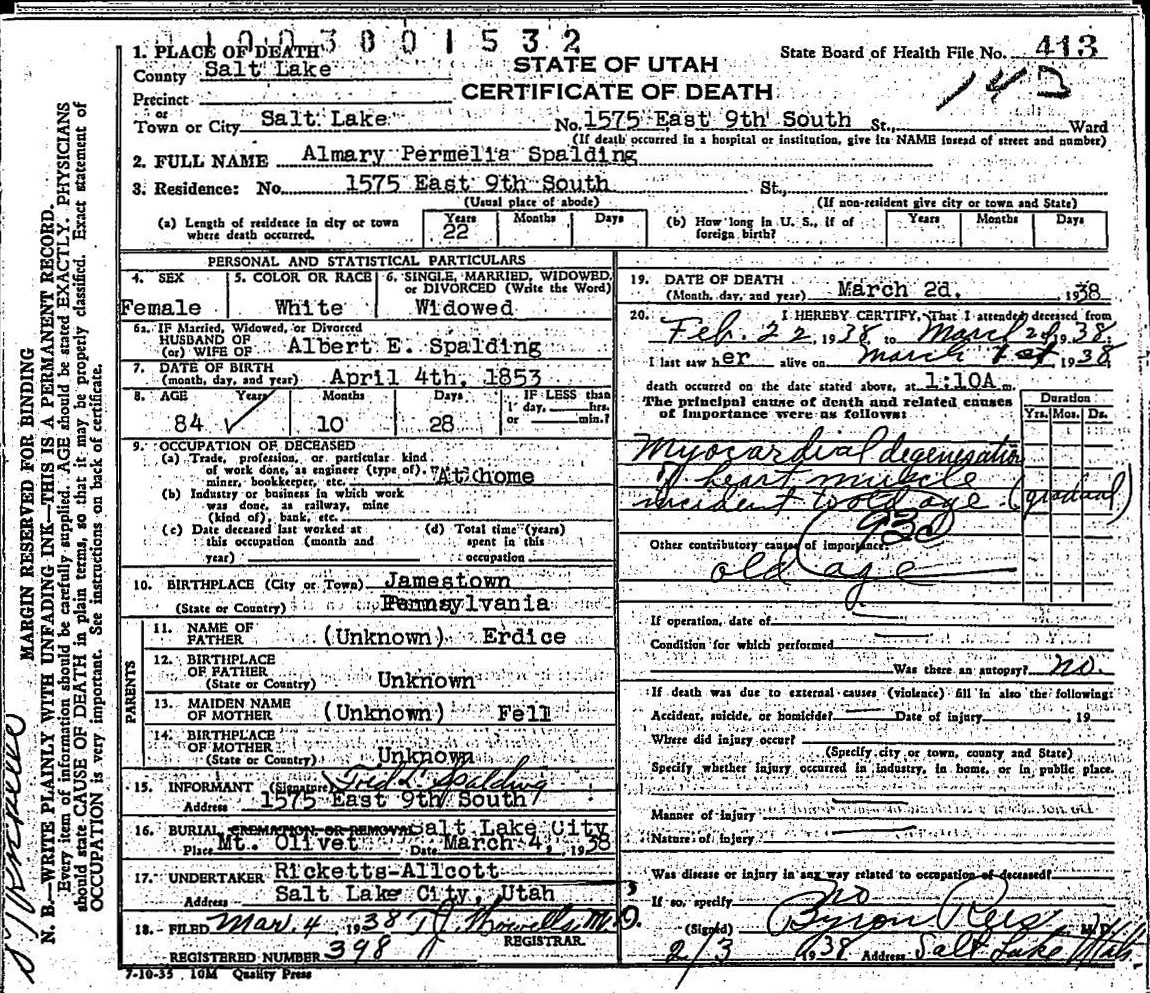 1. PLACE OF DEATH
County Salt Lake
0 1 0 0 3 8 0 1 5 3 2
STATE OF UTAH
CERTIFICATE OF DEATH
State Board of Health File No. 413
143
Precinct
or
Town or City Salt Lake No. 1575 East 9th South St., Ward
(If death occurred in a hospital or institution, give its NAME instead of street and number)
2. FULL NAME Almary Permelia Spalding
3. Residence: No. 1575 East 9th South St.,
(Usual place of abode) (If non-resident give city or town and State)
(a) Length of residence in city or town where death occurred. Years 22 Months Days
(b) How long in U. S., if of foreign birth? Years Months Days
PERSONAL AND STATISTICAL PARTICULARS
4. SEX 5. COLOR OR RACE 6. SINGLE, MARRIED, WIDOWED, or DIVORCED (Write the Word)
Female White Widowed
6a. IF Married, Widowed, or Divorced
HUSBAND OF
(or) WIFE OF Albert E. Spalding
7. DATE OF BIRTH
(month, day, and year) April 4th, 1853
8. AGE Years Months Days IF LESS than
1 day, hrs.
or min.?
84 10 28
9. OCCUPATION OF DECEASED
(a) Trade, profession, or particular kind
of work done, as engineer (type of),
miner, bookkeeper, etc. At home
(b) Industry or business in which work
was done, as railway, mine
(kind of), bank, etc.
(c) Date deceased last worked at
this occupation (month and
year)
(d) Total time (years)
spent in this
occupation
10. BIRTHPLACE (City or Town) Jamestown
(State or Country) Pennsylvania
PARENTS
11. NAME OF
FATHER (Unknown) Erdice
12. BIRTHPLACE
OF FATHER
(State or Country) Unknown
13. MAIDEN NAME
OF MOTHER (Unknown) Fell
14. BIRTHPLACE
OF MOTHER
(State or Country) Unknown
15. INFORMANT (Signature) Fred L. Spalding
Address 1575 East 9th South
16. BURIAL, CREMATION, OR REMOVAL Salt Lake City
Place Mt. Olivet Date March 4, 1938
17. UNDERTAKER Ricketts-Allcott
Address Salt Lake City, Utah
18. FILED Mar. 4, 1938 T J Howells M.D.
REGISTRAR.
REGISTERED NUMBER 398
7-10-35 10M Quality Press
19. DATE OF DEATH
(Month, day, and year) March 2d. 1938
20. I HEREBY CERTIFY, That I attended deceased from
Feb. 22, 1938, to March 2d, 1938,
I last saw her alive on March 1st, 1938,
death occurred on the date stated above, at 1:10A m.
The principal cause of death and related causes
of importance were as follows:
Duration
Yrs. Mos. Ds.
Myocardial degeneration
of heart muscle
incident to old age (gradual)
93c
Other contributory causes of importance:
old age
If operation, date of
Condition for which performed
Was there an autopsy? no.
If death was due to external causes (violence) fill in also the following:
Accident, suicide, or homicide? Date of injury , 19
Where did injury occur?
(Specify city or town, county and State)
Specify whether injury occurred in industry, in home, or in public place.
Manner of injury
Nature of injury
Was disease or injury in any way related to occupation of deceased?
If so, specify no
(Signed) Byron Rees M.D.
2/3 1938 Address Salt Lake Utah.
MARGIN RESERVED FOR BINDING
N. B.—WRITE PLAINLY WITH UNFADING INK—THIS IS A PERMANENT RECORD.
Every item of information should be carefully supplied. AGE should be stated EXACTLY. PHYSICIANS
should state CAUSE OF DEATH in plain terms, so that it may be properly classified. Exact statement of
OCCUPATION is very important. See instructions on back of certificate.